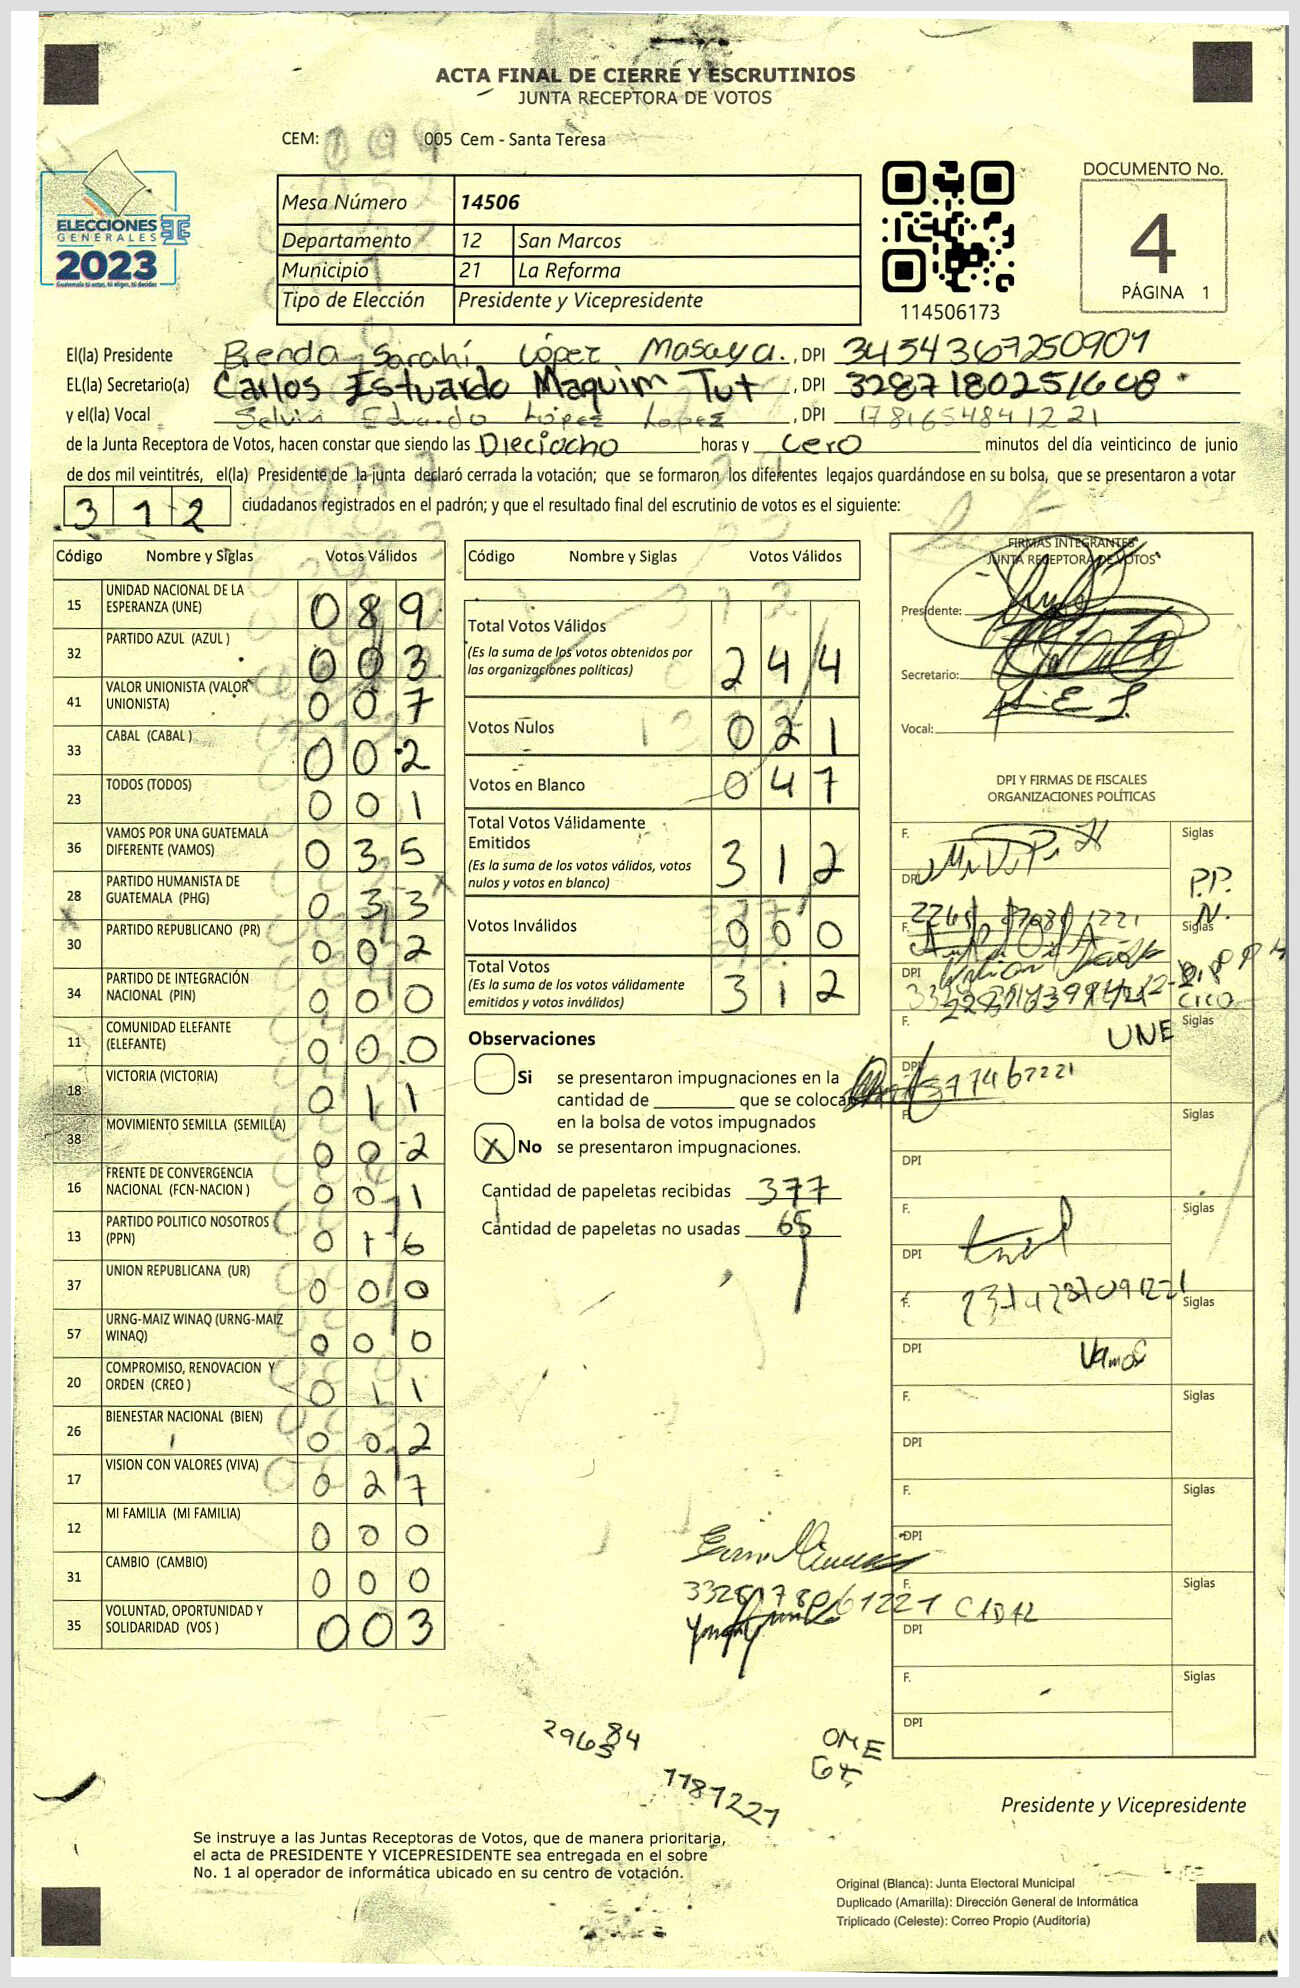 ACTA FINAL DE CIERRE Y ESCRUTINIOS
JUNTA RECEPTORA DE VOTOS
CEM: 005 Cem - Santa Teresa
ELECCIONES
GENERALES
2023
Guatemala tú votas, tú eliges, tú decides
Mesa Número 14506
Departamento 12 San Marcos
Municipio 21 La Reforma
Tipo de Elección Presidente y Vicepresidente
114506173
DOCUMENTO No.
4
PÁGINA 1
El(la) Presidente Brenda Sarahí López Masaya. , DPI 3454367250901
EL(la) Secretario(a) Carlos Estuardo Maquim Tut , DPI 3287180251608
y el(la) Vocal Selvin Eduardo López Lopez , DPI 1781654841221
de la Junta Receptora de Votos, hacen constar que siendo las Dieciocho horas y cero minutos del día veinticinco de junio
de dos mil veintitrés, el(la) Presidente de la junta declaró cerrada la votación; que se formaron los diferentes legajos guardándose en su bolsa, que se presentaron a votar
312 ciudadanos registrados en el padrón; y que el resultado final del escrutinio de votos es el siguiente:
Código Nombre y Siglas Votos Válidos
15 UNIDAD NACIONAL DE LA ESPERANZA (UNE) 089
32 PARTIDO AZUL (AZUL ) 003
41 VALOR UNIONISTA (VALOR UNIONISTA) 007
33 CABAL (CABAL ) 002
23 TODOS (TODOS) 001
36 VAMOS POR UNA GUATEMALA DIFERENTE (VAMOS) 035
28 PARTIDO HUMANISTA DE GUATEMALA (PHG) 033
30 PARTIDO REPUBLICANO (PR) 002
34 PARTIDO DE INTEGRACIÓN NACIONAL (PIN) 000
11 COMUNIDAD ELEFANTE (ELEFANTE) 000
18 VICTORIA (VICTORIA) 011
38 MOVIMIENTO SEMILLA (SEMILLA) 002
16 FRENTE DE CONVERGENCIA NACIONAL (FCN-NACION ) 001
13 PARTIDO POLITICO NOSOTROS (PPN) 016
37 UNION REPUBLICANA (UR) 000
57 URNG-MAIZ WINAQ (URNG-MAIZ WINAQ) 000
20 COMPROMISO, RENOVACION Y ORDEN (CREO ) 011
26 BIENESTAR NACIONAL (BIEN) 002
17 VISION CON VALORES (VIVA) 027
12 MI FAMILIA (MI FAMILIA) 000
31 CAMBIO (CAMBIO) 000
35 VOLUNTAD, OPORTUNIDAD Y SOLIDARIDAD (VOS ) 003
Código Nombre y Siglas Votos Válidos
Total Votos Válidos 244
(Es la suma de los votos obtenidos por
las organizaciones políticas)
Votos Nulos 021
Votos en Blanco 047
Total Votos Válidamente
Emitidos 312
(Es la suma de los votos válidos, votos
nulos y votos en blanco)
Votos Inválidos 000
Total Votos 312
(Es la suma de los votos válidamente
emitidos y votos inválidos)
Observaciones
Si se presentaron impugnaciones en la
cantidad de ________ que se colocan
en la bolsa de votos impugnados
X No se presentaron impugnaciones.
Cantidad de papeletas recibidas 377
Cantidad de papeletas no usadas 65
FIRMAS INTEGRANTES
JUNTA RECEPTORA DE VOTOS
Presidente:
Secretario:
Vocal:
DPI Y FIRMAS DE FISCALES
ORGANIZACIONES POLÍTICAS
F. Siglas
DPI P.P.N.
F. Siglas
DPI
F. Siglas
UNE
DPI
F. Siglas
DPI
F. Siglas
DPI
F. Siglas
DPI Vamos
F. Siglas
DPI
F. Siglas
DPI
F. Siglas
DPI
F. Siglas
DPI
1187221
Presidente y Vicepresidente
Se instruye a las Juntas Receptoras de Votos, que de manera prioritaria,
el acta de PRESIDENTE Y VICEPRESIDENTE sea entregada en el sobre
No. 1 al operador de informática ubicado en su centro de votación.
Original (Blanca): Junta Electoral Municipal
Duplicado (Amarilla): Dirección General de Informática
Triplicado (Celeste): Correo Propio (Auditoría)